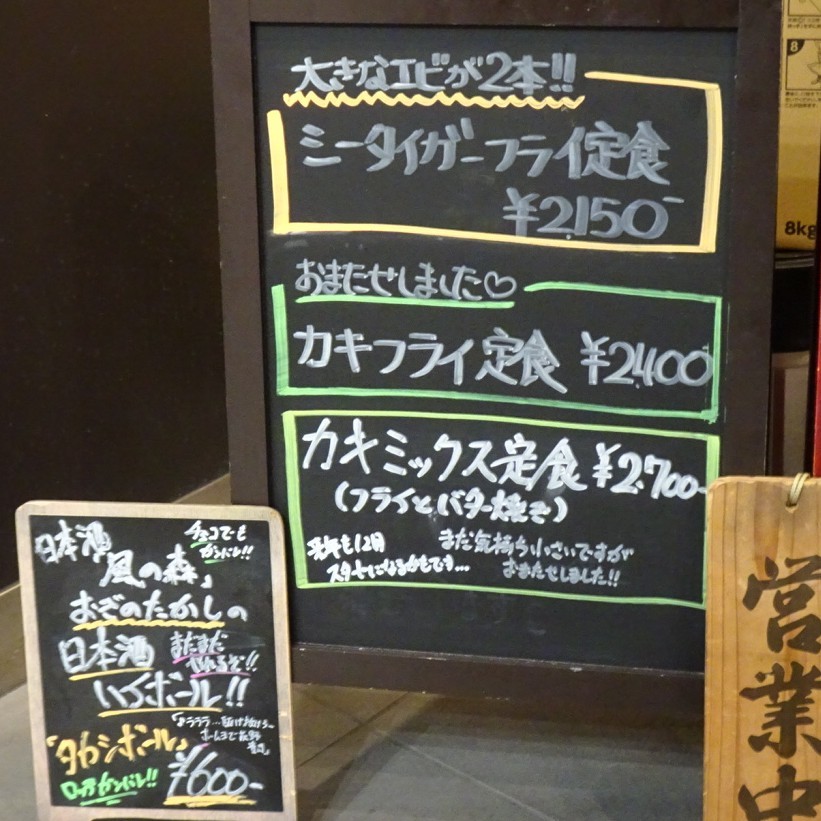 大きなエビが2本!!
ミータイガーフライ定食
¥2,150-
おまたせしました♡
カキフライ定食 ¥2,400
カキミックス定食 ¥2,700-
(フライとバター焼き)
来年も12月
スタートになるかもです...
まだ気持ち小さいですが
おまたせしました!!
日本酒
チョコでも
ガンバレ!!
風の森」
おぎのたかしの
日本酒
まだまだ
やれるぞ!!
ハイボール!!
「タカシボール」
¥600-
ロッテガンバレ!!
営業中
8
8kg